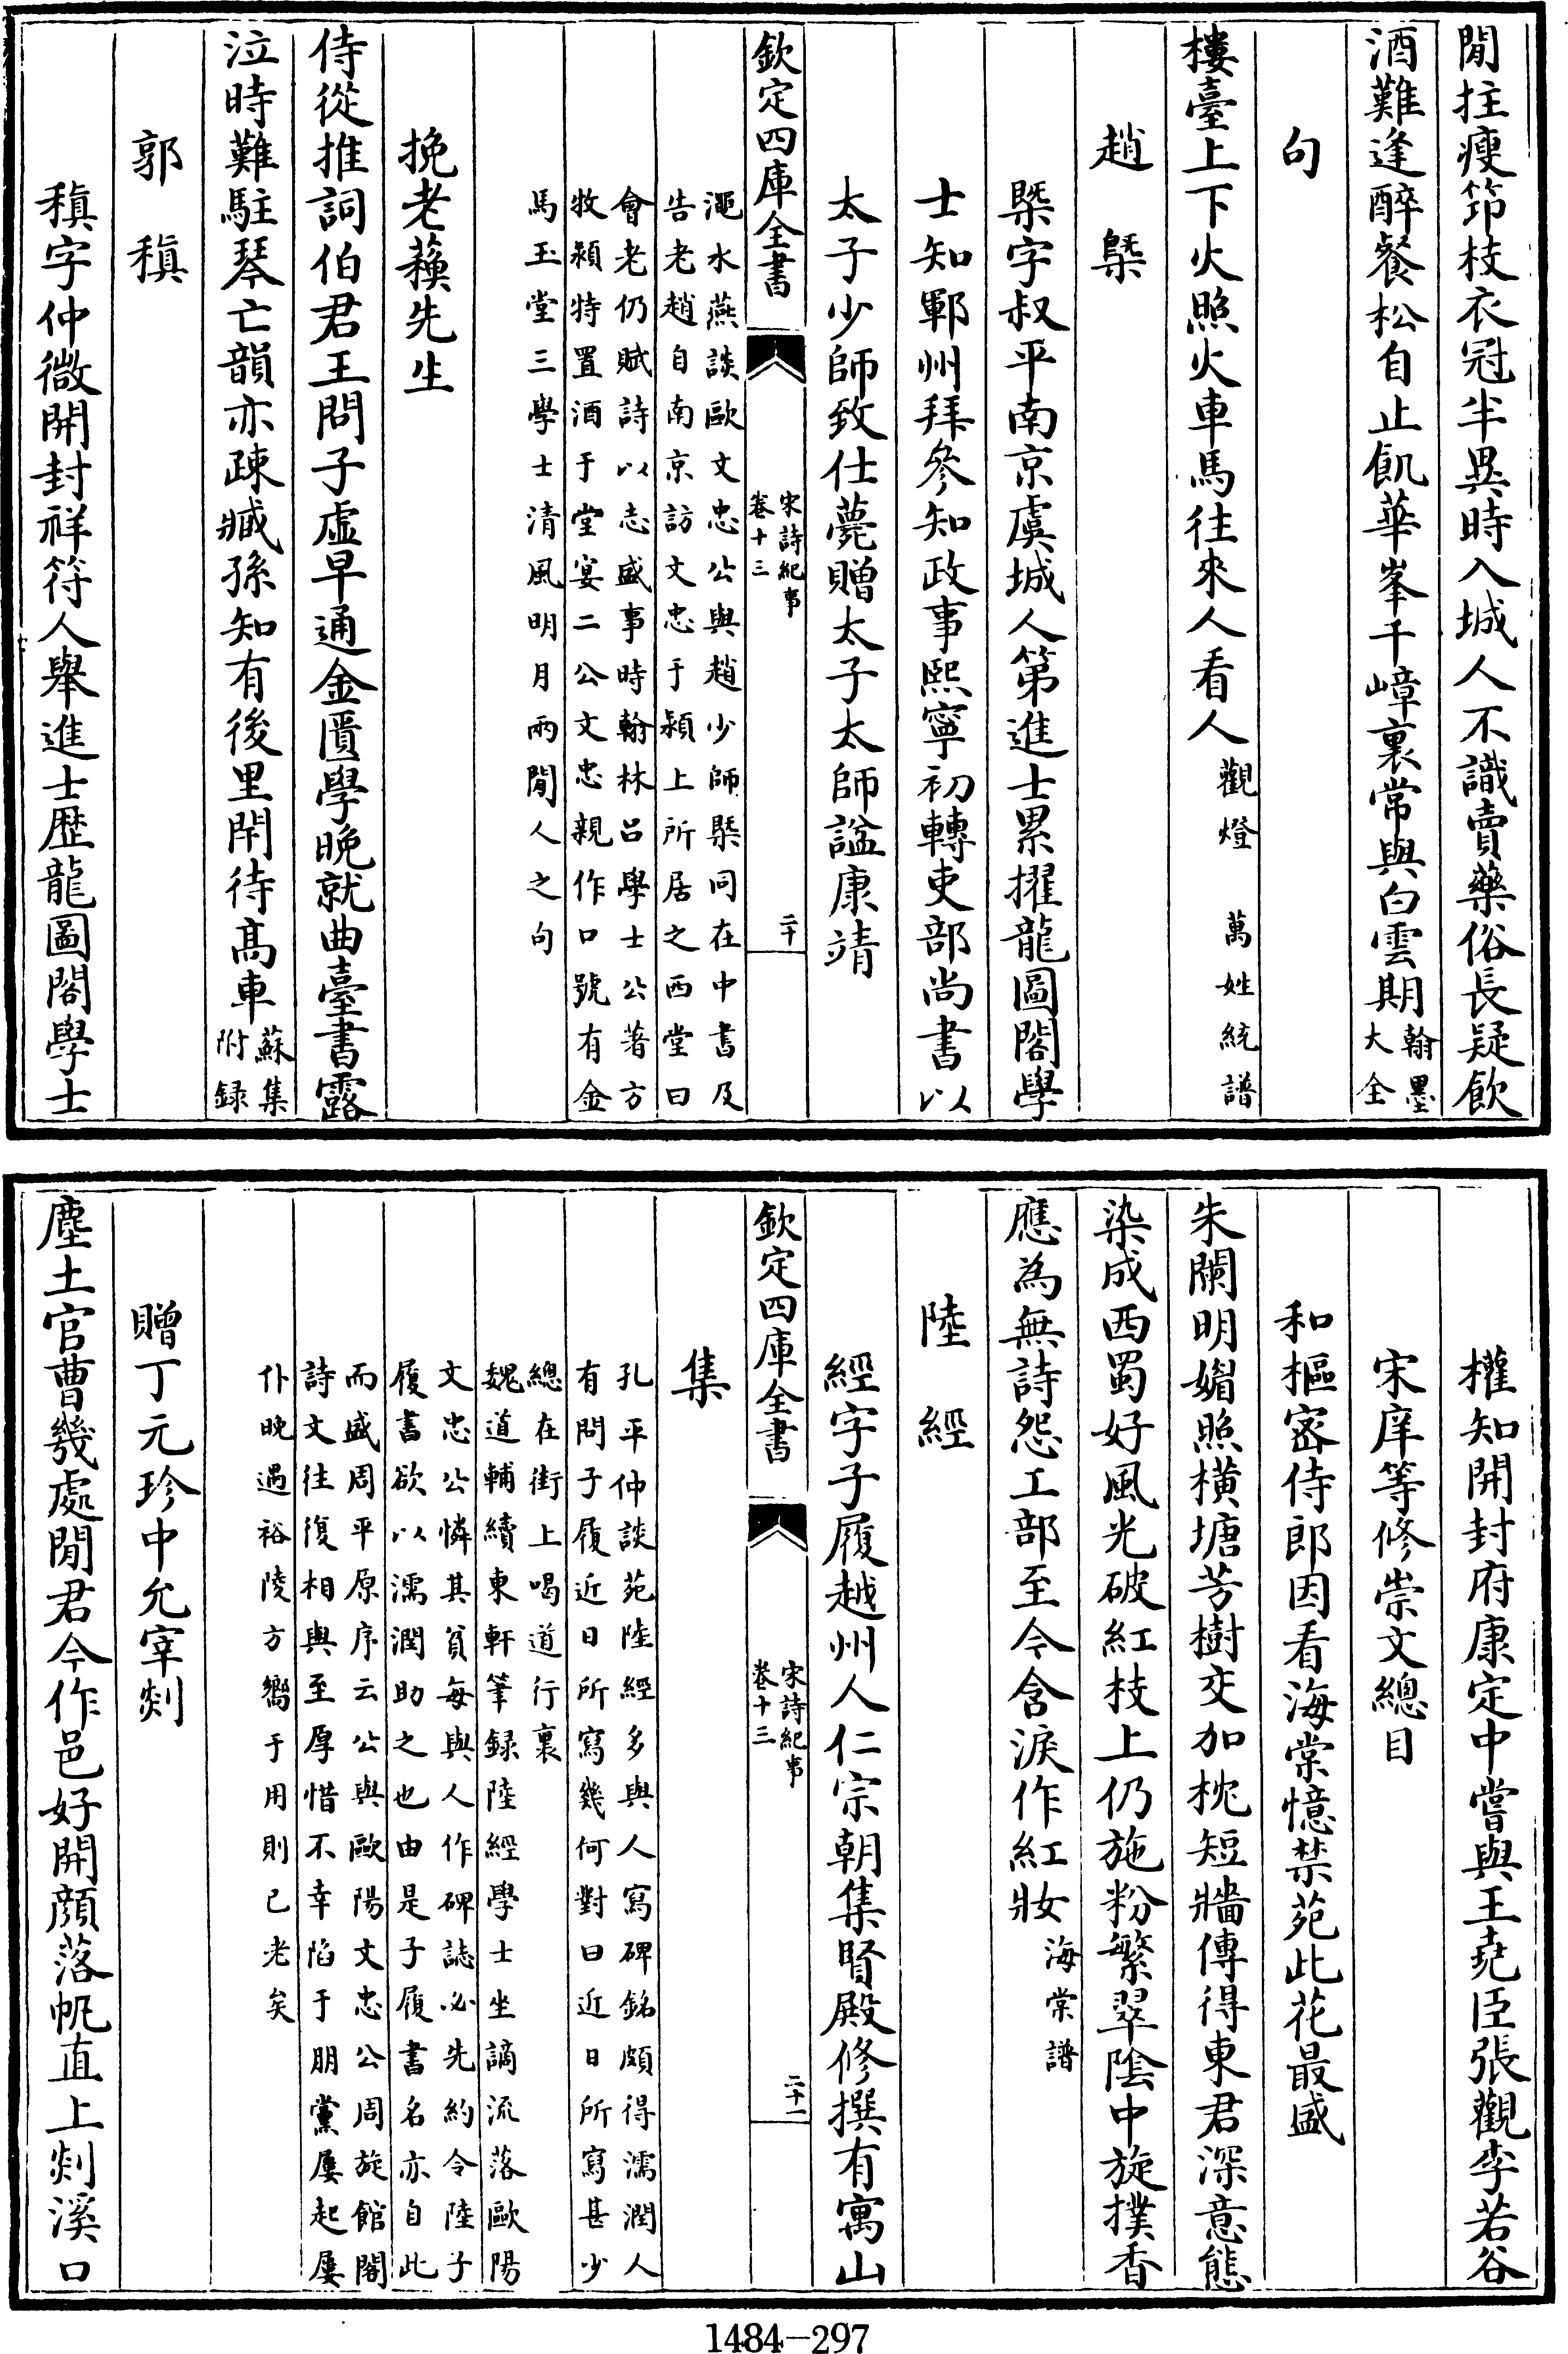 閒拄瘦筇枝衣冠半異時入城人不識賣藥俗長疑飲
酒難逢醉餐松自止飢華峯千嶂裏常與白雲期翰墨大全
句
樓臺上下火照火車馬往來人看人觀燈 萬姓統譜
趙槩
槩字叔平南京虞城人第進士累擢龍圖閣學
士知鄆州拜參知政事熙寧初轉吏部尚書以
太子少師致仕薨贈太子太師諡康靖
欽定四庫全書 宋詩紀事 卷十三 二十
澠水燕談歐文忠公與趙少師槩同在中書及
告老趙自南京訪文忠于潁上所居之西堂曰
會老仍賦詩以志盛事時翰林呂學士公著方
牧潁特置酒于堂宴二公文忠親作口號有金
馬玉堂三學士清風明月兩閒人之句
挽老蘓先生
侍從推詞伯君王問子虛早通金匱學晚就曲臺書露
泣時難駐琴亡韻亦疎臧孫知有後里閈待高車蘇集附録
郭稹
稹字仲微開封祥符人舉進士歴龍圖閣學士
權知開封府康定中嘗與王堯臣張觀李若谷
宋庠等修崇文總目
和樞密侍郎因看海棠憶禁苑此花最盛
朱闌明媚照橫塘芳樹交加枕短牆傳得東君深意態
染成西蜀好風光破紅枝上仍施粉繁翠陰中旋撲香
應為無詩怨工部至今含淚作紅妝海棠譜
陸經
經字子履越州人仁宗朝集賢殿修撰有寓山
欽定四庫全書 宋詩紀事 卷十三 二十一
集
孔平仲談苑陸經多與人寫碑銘頗得濡潤人
有問子履近日所寫幾何對曰近日所寫甚少
總在街上喝道行裏
魏道輔續東軒筆録陸經學士坐謫流落歐陽
文忠公憐其貧每與人作碑誌必先約令陸子
履書欲以濡潤助之也由是子履書名亦自此
而盛周平原序云公與歐陽文忠公周旋館閣
詩文往復相與至厚惜不幸陷于朋黨屢起屢
仆晚遇裕陵方嚮于用則已老矣
贈丁元珍中允宰剡
塵土官曹幾處閒君今作邑好開顔落帆直上剡溪口
1484-297